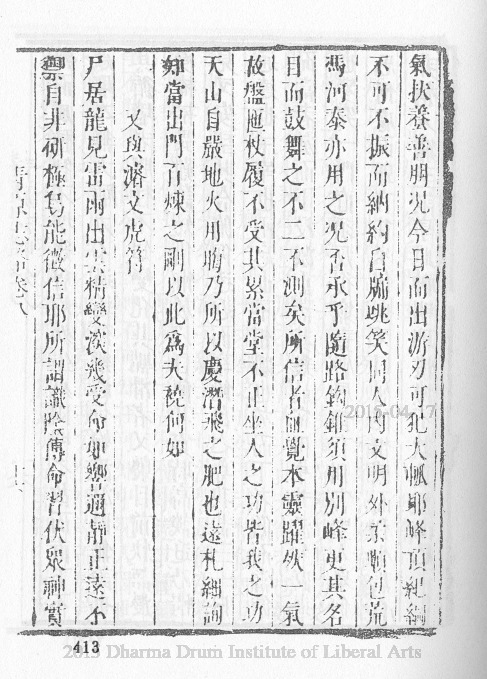 氣扶養善胭況今日而出游刃可犯大軱耶峰頂紀綱
不可不振而納約自牖咷笑同人內文明外柔順包荒
馮河泰亦用之况否承乎隨路鈎錐須用別峰更其名
目而鼓舞之不二不測矣所信者直覺本靈躍然一氣
故盤匜杖履不受其累當堂不正坐人之功皆我之功
天山自嚴地火用晦乃所以慶潛飛之肥也遠札細詢
如當出門百煉之剛以此爲夫襓何如
又與濬文虎符
尸居龍見雷雨出雲精變淡幾受命如響通靜正遠不
禦自非研極烏能徵信耶所謂讖陰傳命習伏眾神實
青原志畧卷八
413
2013-04-17
2013 Dharma Drum Institute of Liberal Arts